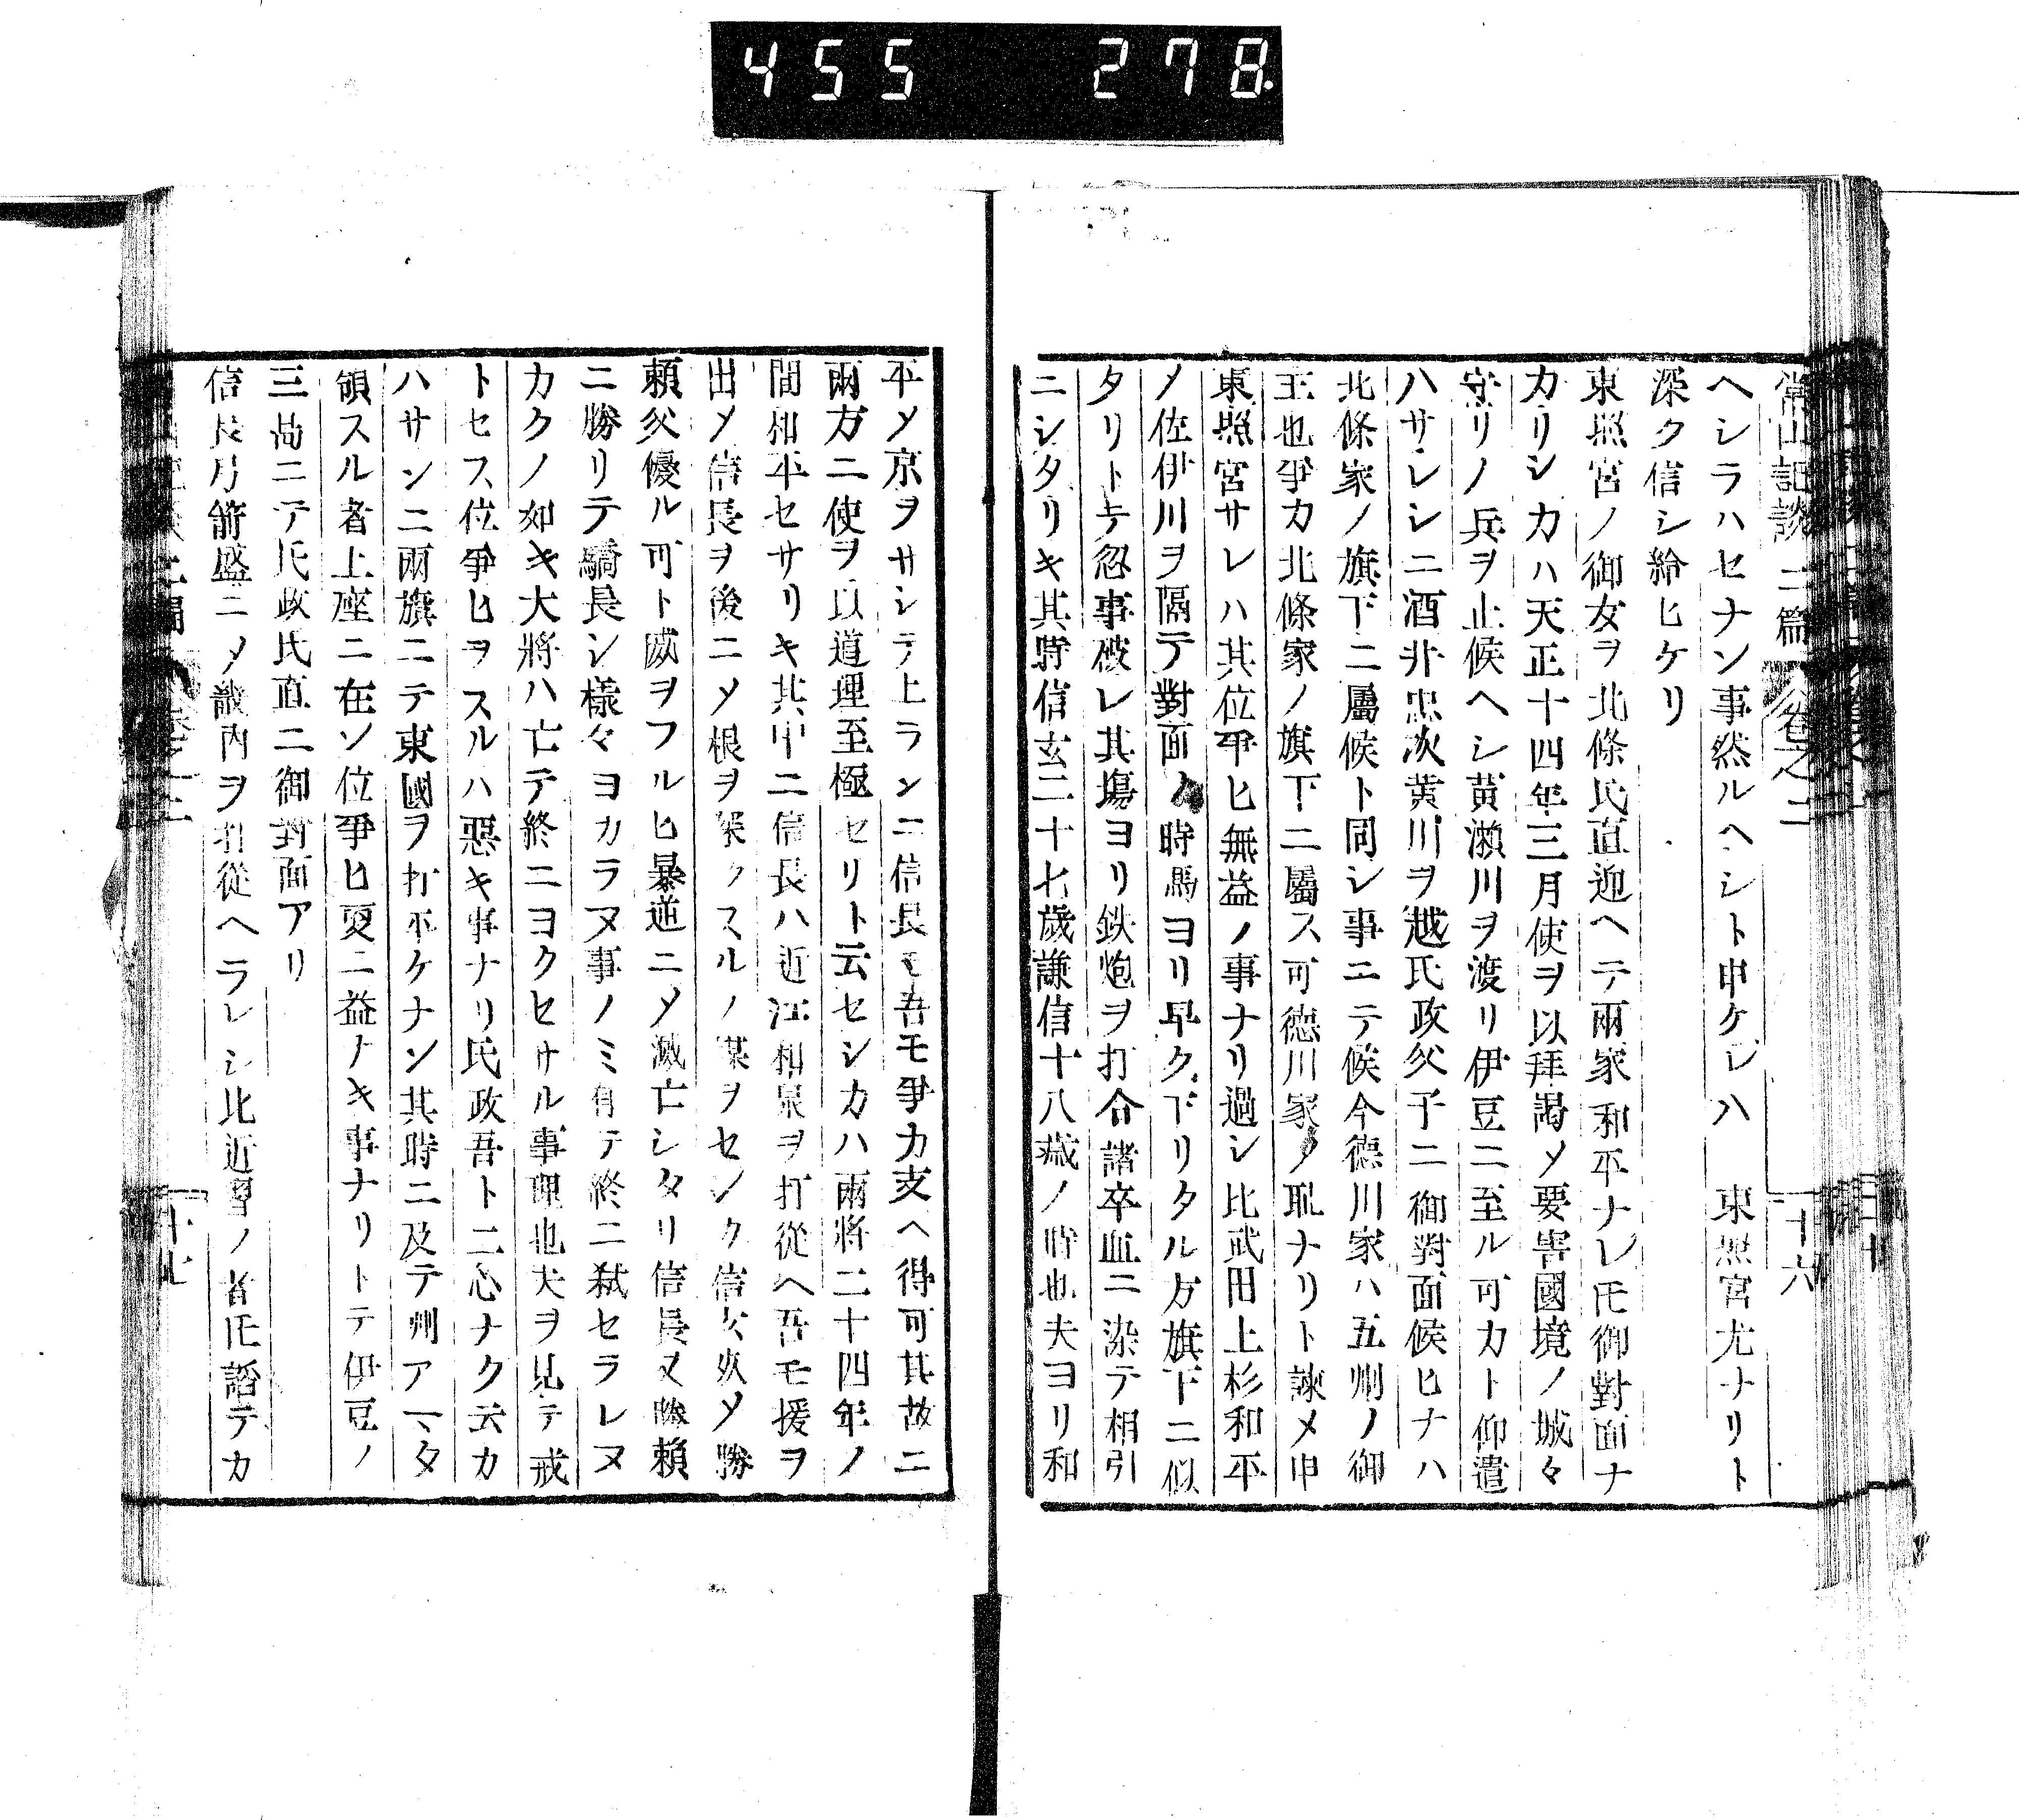 455 278
常山記談 二篇 卷之二 二十六
ヘシラハセナン事然ルヘシト申ケレハ 東照宮尤ナリト
深ク信シ給ヒケリ
東照宮ノ御女ヲ北條氏直迎ヘテ兩家和平ナレ𪜈御對面ナ
カリシカハ天正十四年三月使ヲ以拜謁〆要害國境ノ城々
守リノ兵ヲ止候ヘシ黄瀬川ヲ渡リ伊豆ニ至ル可カト仰遣
ハサレシニ酒井忠次黄川ヲ越氏政父子ニ御對面候ヒナハ
北條家ノ旗下ニ屬候ト同シ事ニテ候今德川家ハ五州ノ御
主也爭カ北條家ノ旗下ニ屬ス可德川家ノ恥ナリト諫メ申
東照宮サレハ其位爭ヒ無益ノ事ナリ過シ比武田上杉和平
〆佐伊川ヲ隔テ對面ノ時馬ヨリ早ク下リタル方旗下ニ似
タリトテ忽事破レ其塲ヨリ鉄炮ヲ打合諸卒血ニ染テ相引
ニシタリキ其時信玄二十七歳謙信十八歳ノ時也夫ヨリ和
平〆京ヲサシテ上ランニ信長モ吾モ爭カ支ヘ得可其故ニ
兩方ニ使ヲ以道理至極セリト云セシカハ兩將二十四年ノ
間和平セサリキ其中ニ信長ハ近江和泉ヲ打從ヘ吾モ援ヲ
出〆信長ヲ後ニ〆根ヲ深クスルノ謀ヲセシク信玄死〆勝
賴父優ル可ト威ヲフルヒ暴逆ニ〆滅亡シタリ信長又勝賴
ニ勝リテ驕長シ樣々ヨカラヌ事ノミ有テ終ニ弑セラレヌ
カクノ如キ大將ハ亡テ終ニヨクセサル事理也夫ヲ見テ戒
トセス位爭ヒヲスルハ惡キ事ナリ氏政吾ト二心ナク云カ
ハサンニ兩旗ニテ東國ヲ打平ケナン其時ニ及テ州アマタ
領スル者上座ニ在ソ位爭ヒ更ニ益ナキ事ナリトテ伊豆ノ
三島ニテ氏政氏直ニ御對面アリ
信長弓箭盛ニ〆畿内ヲ打從ヘラレシ比近習ノ者𪜈諮テカ
十七